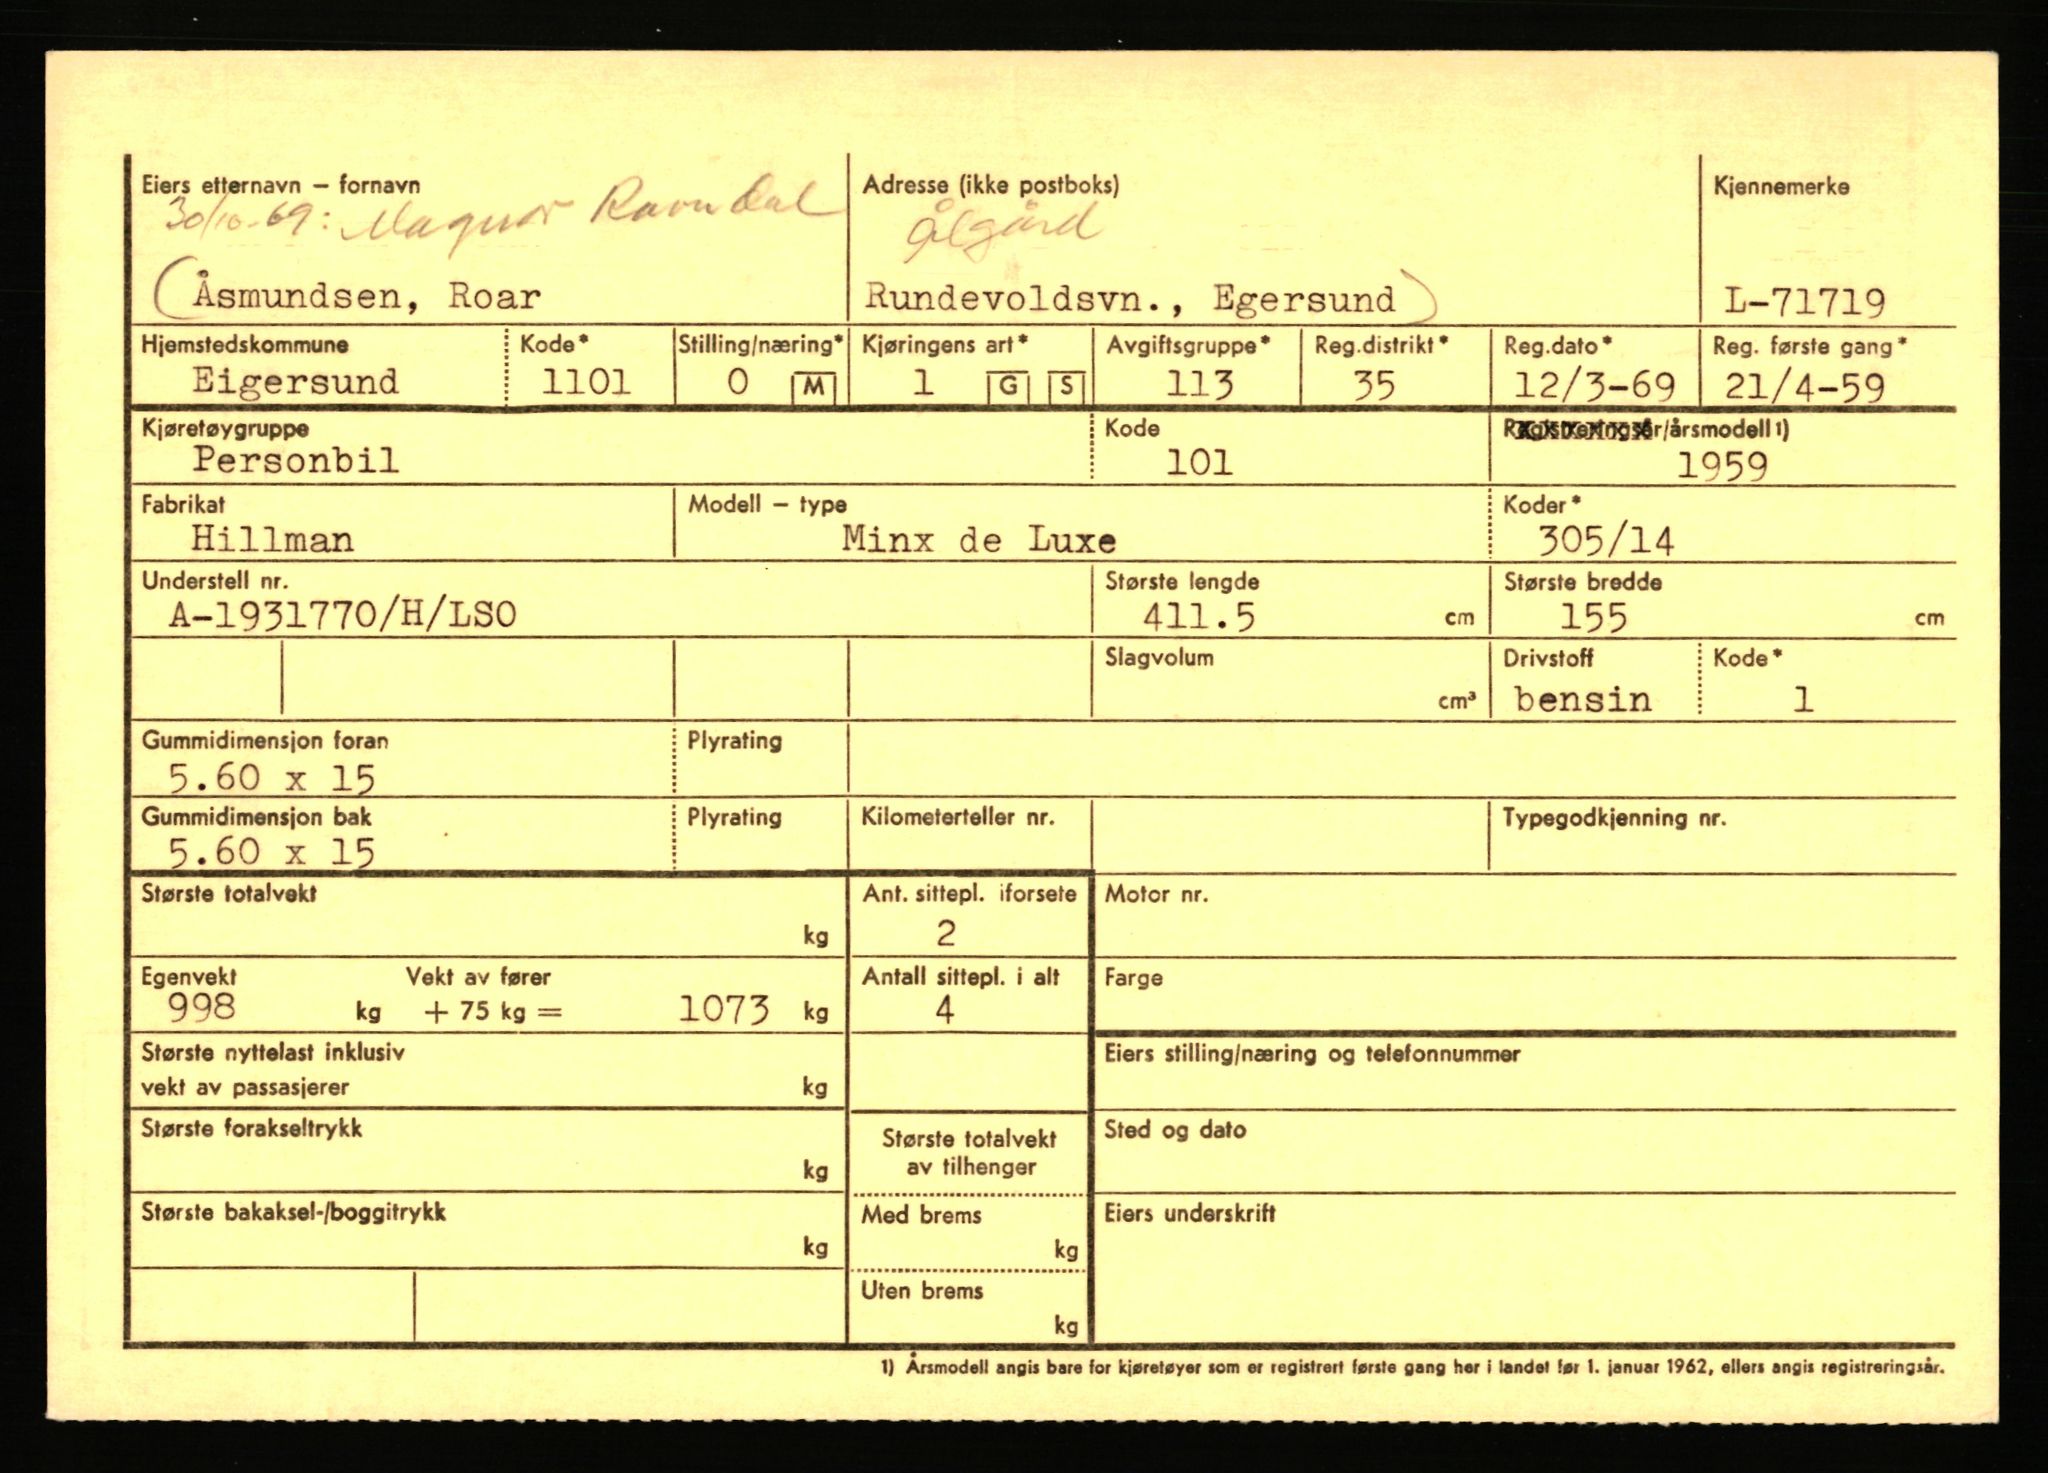 Eiers etternavn – fornavn
30/10-69: Magnar Ravndal
(Åsmundsen, Roar
Adresse (ikke postboks)
Ålgård
Rundevoldsvn., Egersund)
Kjennemerke
L-71719
Hjemstedskommune
Eigersund
Kode*
1101
Stilling/næring*
0 M
Kjøringens art*
1 G S
Avgiftsgruppe*
113
Reg.distrikt*
35
Reg.dato*
12/3-69
Reg. første gang*
21/4-59
Kjøretøygruppe
Personbil
Kode
101
Registreringsår/årsmodell 1)
1959
Fabrikat
Hillman
Modell – type
Minx de Luxe
Koder*
305/14
Understell nr.
A-1931770/H/LSO
Største lengde
411.5 cm
Største bredde
155 cm
Slagvolum
cm³
Drivstoff
bensin
Kode*
1
Gummidimensjon foran
5.60 x 15
Plyrating
Gummidimensjon bak
5.60 x 15
Plyrating
Kilometerteller nr.
Typegodkjenning nr.
Største totalvekt
kg
Ant. sittepl. iforsete
2
Motor nr.
Egenvekt
998 kg
Vekt av fører
+ 75 kg = 1073 kg
Antall sittepl. i alt
4
Farge
Største nyttelast inklusiv
vekt av passasjerer kg
Eiers stilling/næring og telefonnummer
Største forakseltrykk
kg
Største totalvekt
av tilhenger
Sted og dato
Største bakaksel-/boggitrykk
kg
Med brems
kg
Eiers underskrift
Uten brems
kg
1) Årsmodell angis bare for kjøretøyer som er registrert første gang her i landet før 1. januar 1962, ellers angis registreringsår.